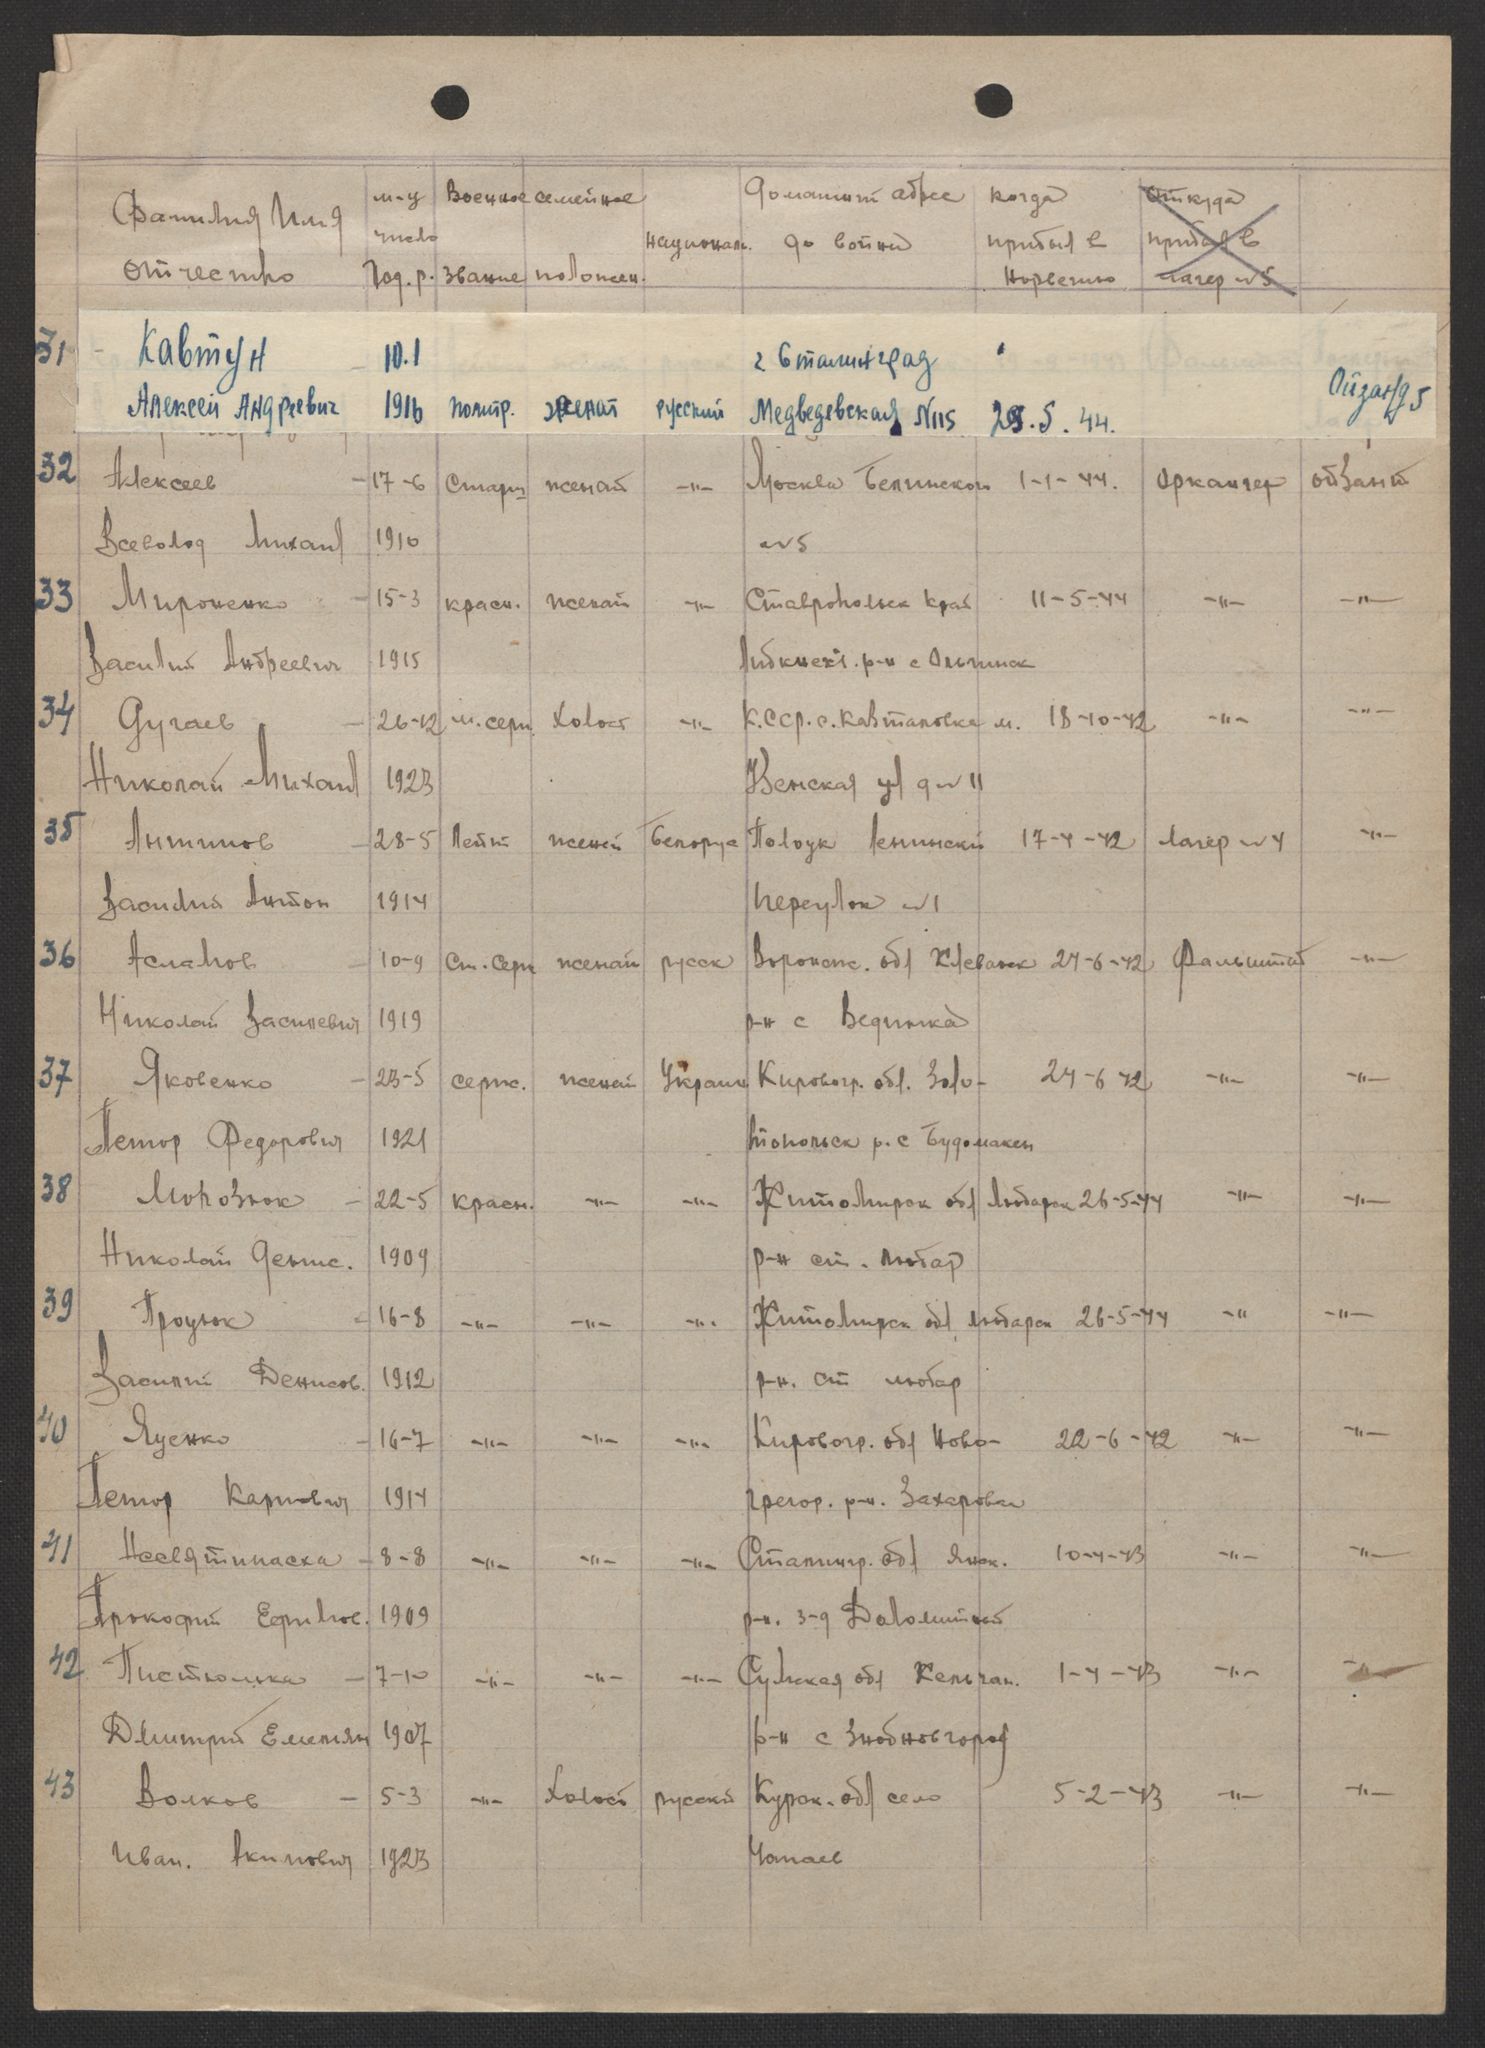 Фамилия Имя отчество м-ц число год.р. Военное звание семейное положен. национал. Домашний адрес до войны когда прибыл в Норвегию откуда прибыл в лагер №5
31 - Кавтун - 10.1 г Сталинград
Алексей Андреевич 1916 политр. женат русский Медведевская №115 28.5.44. Ойзанд 5
32 Алексеев - 17-6 Старш женат -"- Москва Белинского 1-1-44. Аркангер
Всеволод Михаил 1910 №5
33 Мироненко - 15-3 красн. женат -"- Ставропольск край 11-5-44 -"- -"-
Василий Андреевич 1915 Либкнехт. р-н с Ольгинск
34 Дугаев - 26-12 м.серж. холост -"- К.ССР. с. Кавтановка м. 18-10-42 -"- -"-
Николай Михаил 1923 ул д № 11
35 Антипов - 28-5 Лейт женат Белорус Полоцк Ленинский 17-4-42 лагер №4 -"-
Василий Антон 1914 переулок №1
36 Асламов - 10-9 Ст. Серж женат русск Воронеж. обл 24-6-42 Фальштат -"-
Николай Василевич 1919 р-н с Ведиика
37 Яковенко - 23-5 серж. женат Украин Кировогр. обл. Золо- 24-6-42 -"- -"-
Петор Федорович 1921 топольск р. с
38 Морозюк - 22-5 красн. -"- -"- Житомирск обл Любарск 26-5-44 -"- -"-
Николай Денис. 1909 р-н ст. Любар
39 Процюк - 16-8 -"- -"- -"- Житомирск обл Любарск 26-5-44 -"- -"-
Василий Денисов. 1912 р-н. ст Любар
40 Яценко - 16-7 -"- -"- -"- Кировогр. обл Ново- 22-6-42 -"- -"-
Петор Карпович 1914 грегор. р-н. Захаровка
41 - 8-8 -"- -"- -"- Сталингр. обл 10-4-43 -"- -"-
Прокофий Ефимов. 1909 р-н. з-д Доломитный
42 - 7-10 -"- -"- -"- Сумская обл 1-4-43 -"- -"-
Дмитрий Емельян 1907 р-н с Знобновгород
43 Волков - 5-3 -"- холост русский Курск. обл село 5-2-43 -"- -"-
Иван. Акимович 1923 Чапаев